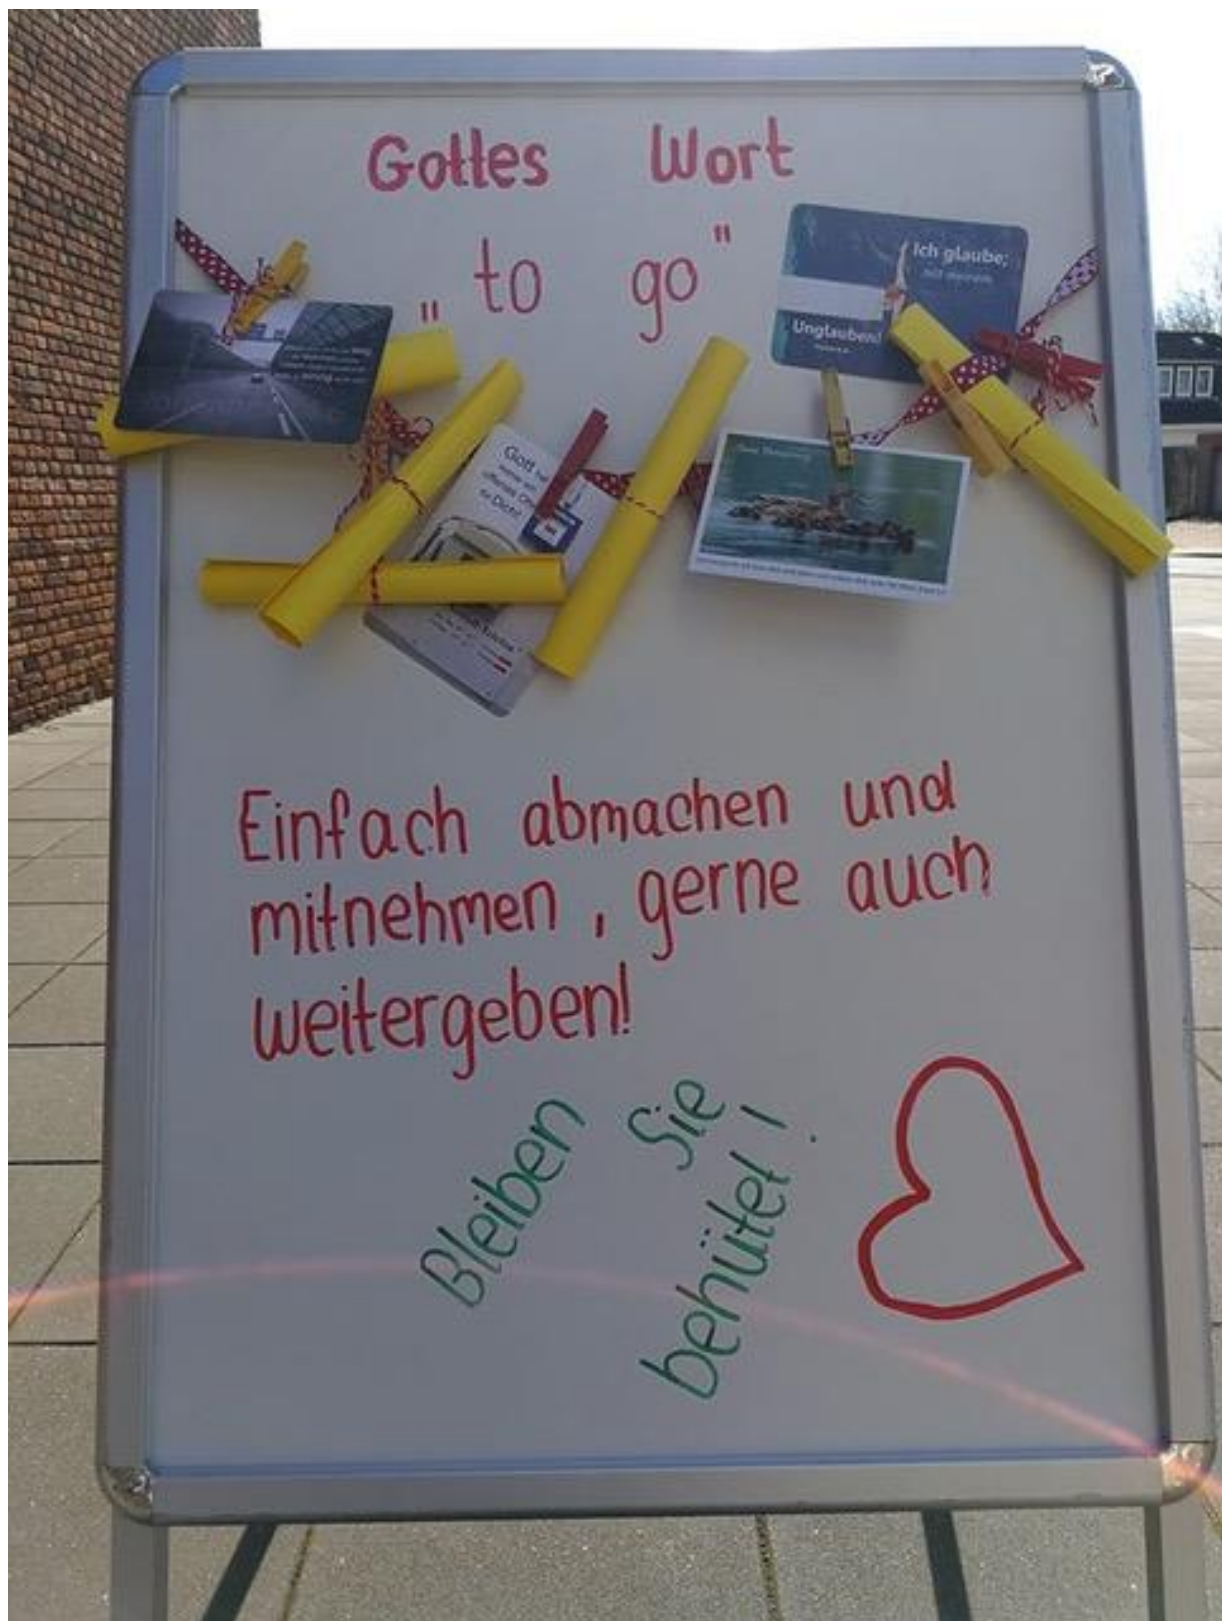 Gottes Wort
„ to go "
Ich glaube;
Unglauben!
Gott
offenes
für Dich!
Einfach abmachen und
mitnehmen, gerne auch
weitergeben!
Bleiben Sie
behütet!